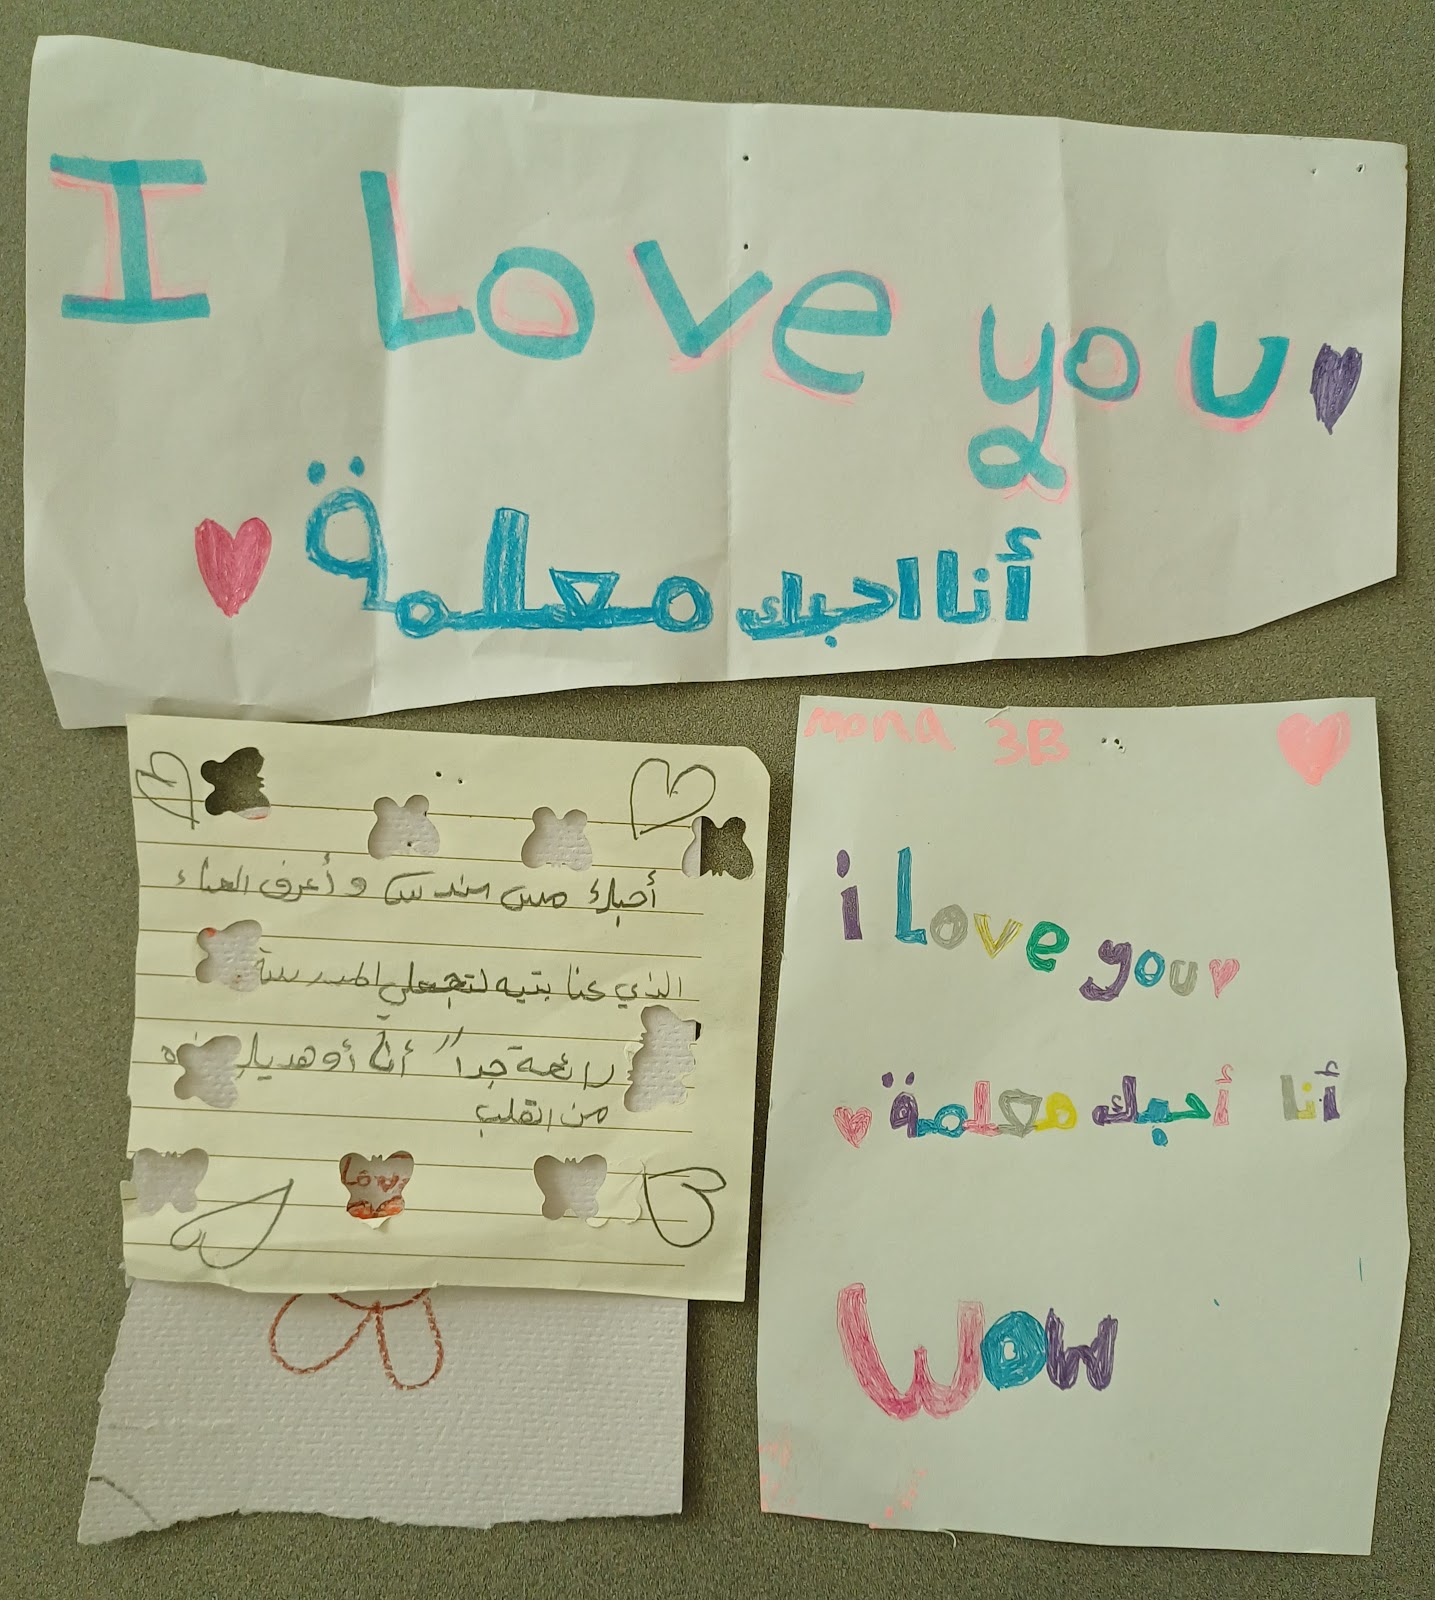 I Love you
أنا احبك معلمة
أحبك مس سندس و أعرف العناء
الذي عنا بتيه لتجعلي المدرسة
رائعة جداً أنا
من القلب
Love
mona 3B
i Love you
أنا أحبك معلمة
Wow